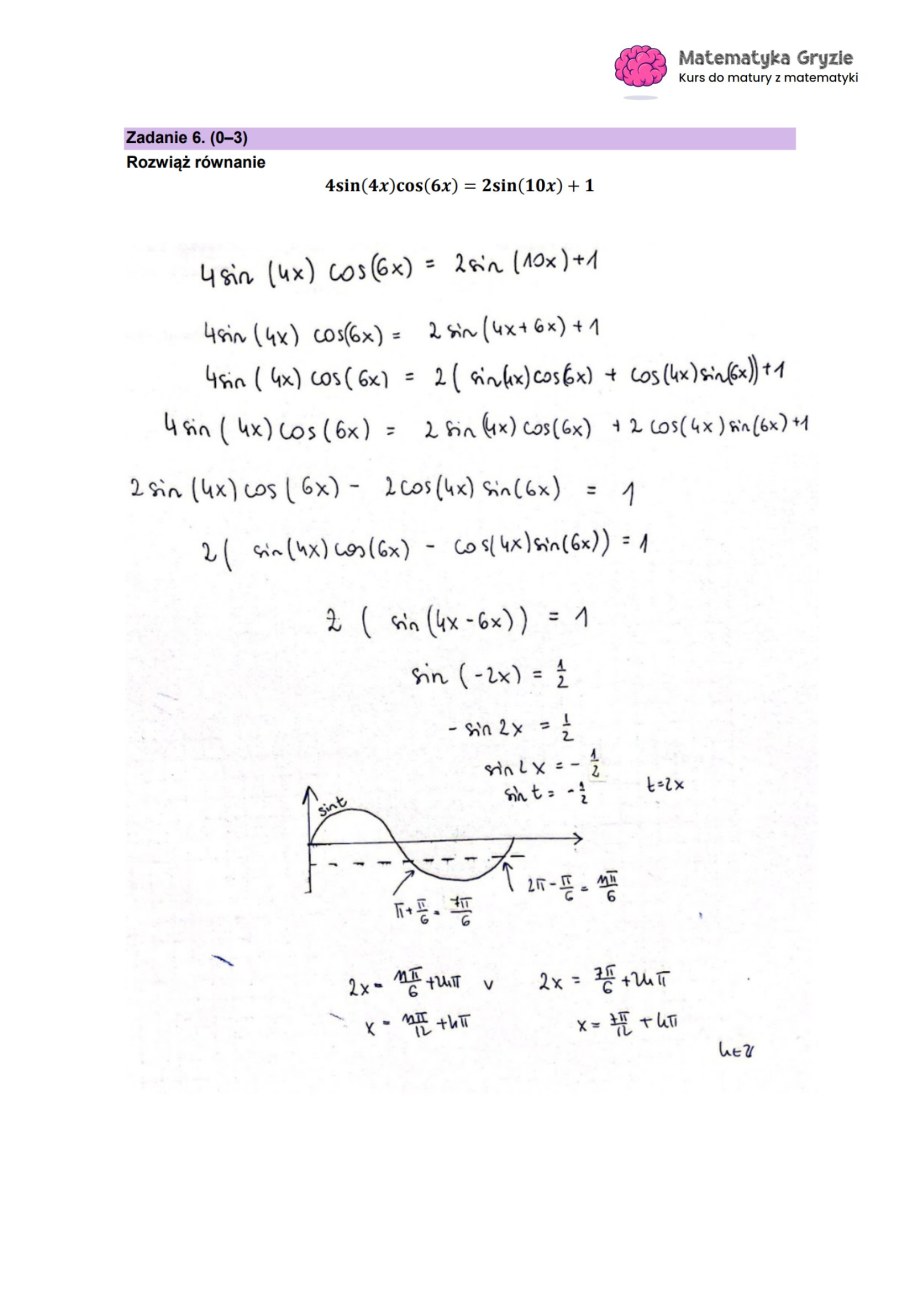 Matematyka Gryzie
Kurs do matury z matematyki
Zadanie 6. (0–3)
Rozwiąż równanie
4sin(4x)cos(6x) = 2sin(10x) + 1
4sin (4x) cos(6x) = 2sin (10x)+1
4sin(4x) cos(6x) = 2 sin(4x+6x) +1
4sin (4x) cos(6x) = 2( sin(4x)cos(6x) + cos(4x)sin(6x))+1
4 sin (4x) cos(6x) = 2 sin(4x) cos(6x) + 2 cos(4x) sin(6x)+1
2 sin (4x) cos (6x) - 2cos(4x) sin(6x) = 1
2( sin(4x)cos(6x) - cos(4x)sin(6x)) = 1
2 ( sin (4x-6x)) = 1
sin (-2x) = 1/2
- sin 2x = 1/2
sin 2x = - 1/2
sin t = - 1/2 t=2x
sin t
π + π/6 = 7π/6 2π - π/6 = 11π/6
2x = 11π/6 + 2kπ v 2x = 7π/6 + 2kπ
x = 11π/12 + kπ x = 7π/12 + kπ
k∈Z